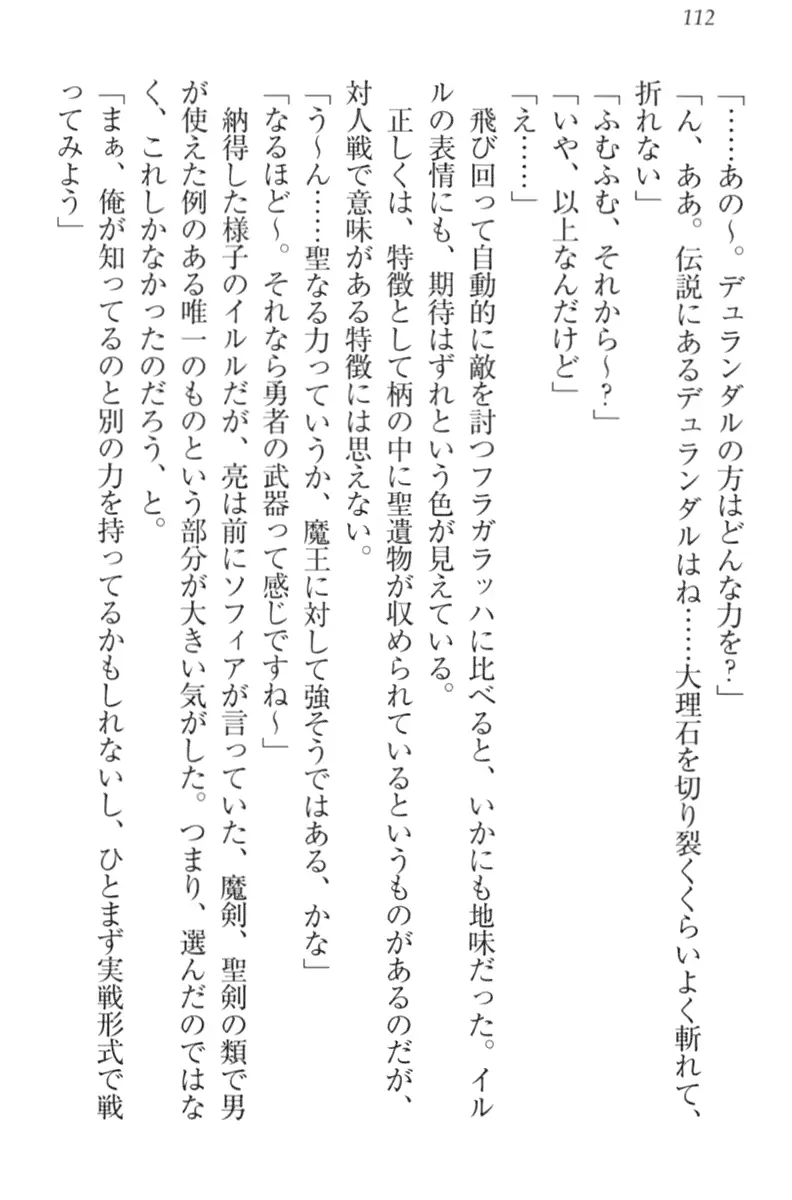 112
「……あの～。デュランダルの方はどんな力を?」
「ん、ああ。伝説にあるデュランダルはね……大理石を切り裂くくらいよく斬れて、
折れない」
「ふむふむ、それから～?」
「いや、以上なんだけど」
「え……」
飛び回って自動的に敵を討つフラガラッハに比べると、いかにも地味だった。イル
ルの表情にも、期待はずれという色が見えている。
正しくは、特徴として柄の中に聖遺物が収められているというものがあるのだが、
対人戦で意味がある特徴には思えない。
「う～ん……聖なる力っていうか、魔王に対して強そうではある、かな」
「なるほど～。それなら勇者の武器って感じですね～」
納得した様子のイルルだが、亮は前にソフィアが言っていた、魔剣、聖剣の類で男
が使えた例のある唯一のものという部分が大きい気がした。つまり、選んだのではな
く、これしかなかったのだろう、と。
「まぁ、俺が知ってるのと別の力を持ってるかもしれないし、ひとまず実戦形式で戦
ってみよう」